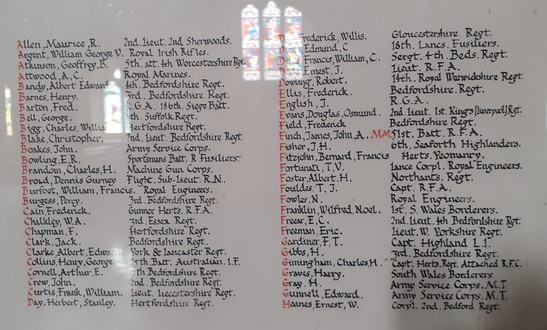 Allen, Maurice, R. 2nd. Lieut. 2nd. Sherwoods.
Argent, William George V. Royal Irish Rifles.
Atkinson, Geoffrey, B. 5th. att. 4th Worcestershire Rgt.
Attwood, A, C. Royal Marines.
Bandy, Albert Edward 4th. Bedfordshire Regt.
Barnes, Henry. 3rd. Bedfordshire Regt.
Barton, Fred. R.G.A. 186th. Siege Batt.
Bell, George, Suffolk Regt.
Bigg, Charles, William Hertfordshire Regt.
Blake, Christopher, 2nd. Lieut. Bedfordshire Regt.
Boakes, John, Army Service Corps.
Bowling, E,R. Sportsmans Batt. R Fusiliers
Brandon, Charles, H. Machine Gun Corps.
Broad, Dennis Gurney Flight. sub-lieut. R.N.
Burfoot, William, Francis. Royal Engineers.
Burgess, Percy. 3rd. Bedfordshire Regt.
Cain, Frederick, Gunner Herts. R.F.A.
Chalkley, W,A. 3rd. Essex Regt.
Chapman, F. Hertfordshire Regt.
Clark, Jack. Bedfordshire Regt.
Clarke, Albert, Edward York & Lancaster Regt.
Collins, Henry, George Batt. Australian. I.F.
Cornell, Arthur, E. Bedfordshire Regt.
Crew, John, 2nd. Bedfordshire Regt.
Curtis, Frank, William. Lieut. Leicestershire Regt.
Day, Herbert, Stanley. Hertfordshire Regt.
Frederick, Willis. Gloucestershire Regt.
Edmund, C 18th. Lancs. Fusiliers.
Francis, William, C. Sergt. 4th. Beds. Regt.
Ernest. J. Lieut. R.F.A.
Dowling, Robert. 14th. Royal Warwickshire Regt.
Ellis, Frederick. Bedfordshire. Regt.
English, J. R.G.A.
Evans, Douglas, Osmund. 2nd Lieut. 1st. King's [Liverpool] Rgt.
Field, Frederick Bedfordshire Regt.
Funds, James, John, A. M.M 51st. Batt. R.F.A.
Fisher, J,H. 6th. Seaforth Highlanders.
Fitzjohn, Bernard, Francis Herts. Yeomanry.
Fortunati, T,V. Lance Corpl. Royal Engineers.
Foster, Albert, H. Northants. Regt.
Foulds, T. J. Capt. R.F.A.
Fowler, N. Royal Engineers.
Franklin, Wilfred, Noel. 1st. S. Wales Borderers.
Frear, E, C. 2nd. Lieut. 4th Bedfordshire Rgt.
Freeman, Eric. Lieut. W. Yorkshire Regt.
Gardiner, F. T. Capt. Highland L.I.
Gibbs, H. 3rd. Bedfordshire Regt.
Gimingham, Charles H. Capt. Herts. Regt. Attached R.F.C.
Graves, Harry. South Wales Borderers
Gray. H. Army Service Corps. M.T
Gunnell, Edward. Army Service Corps. M.T.
Haines, Ernest, W. Corpl. 2nd. Bedford Regt.